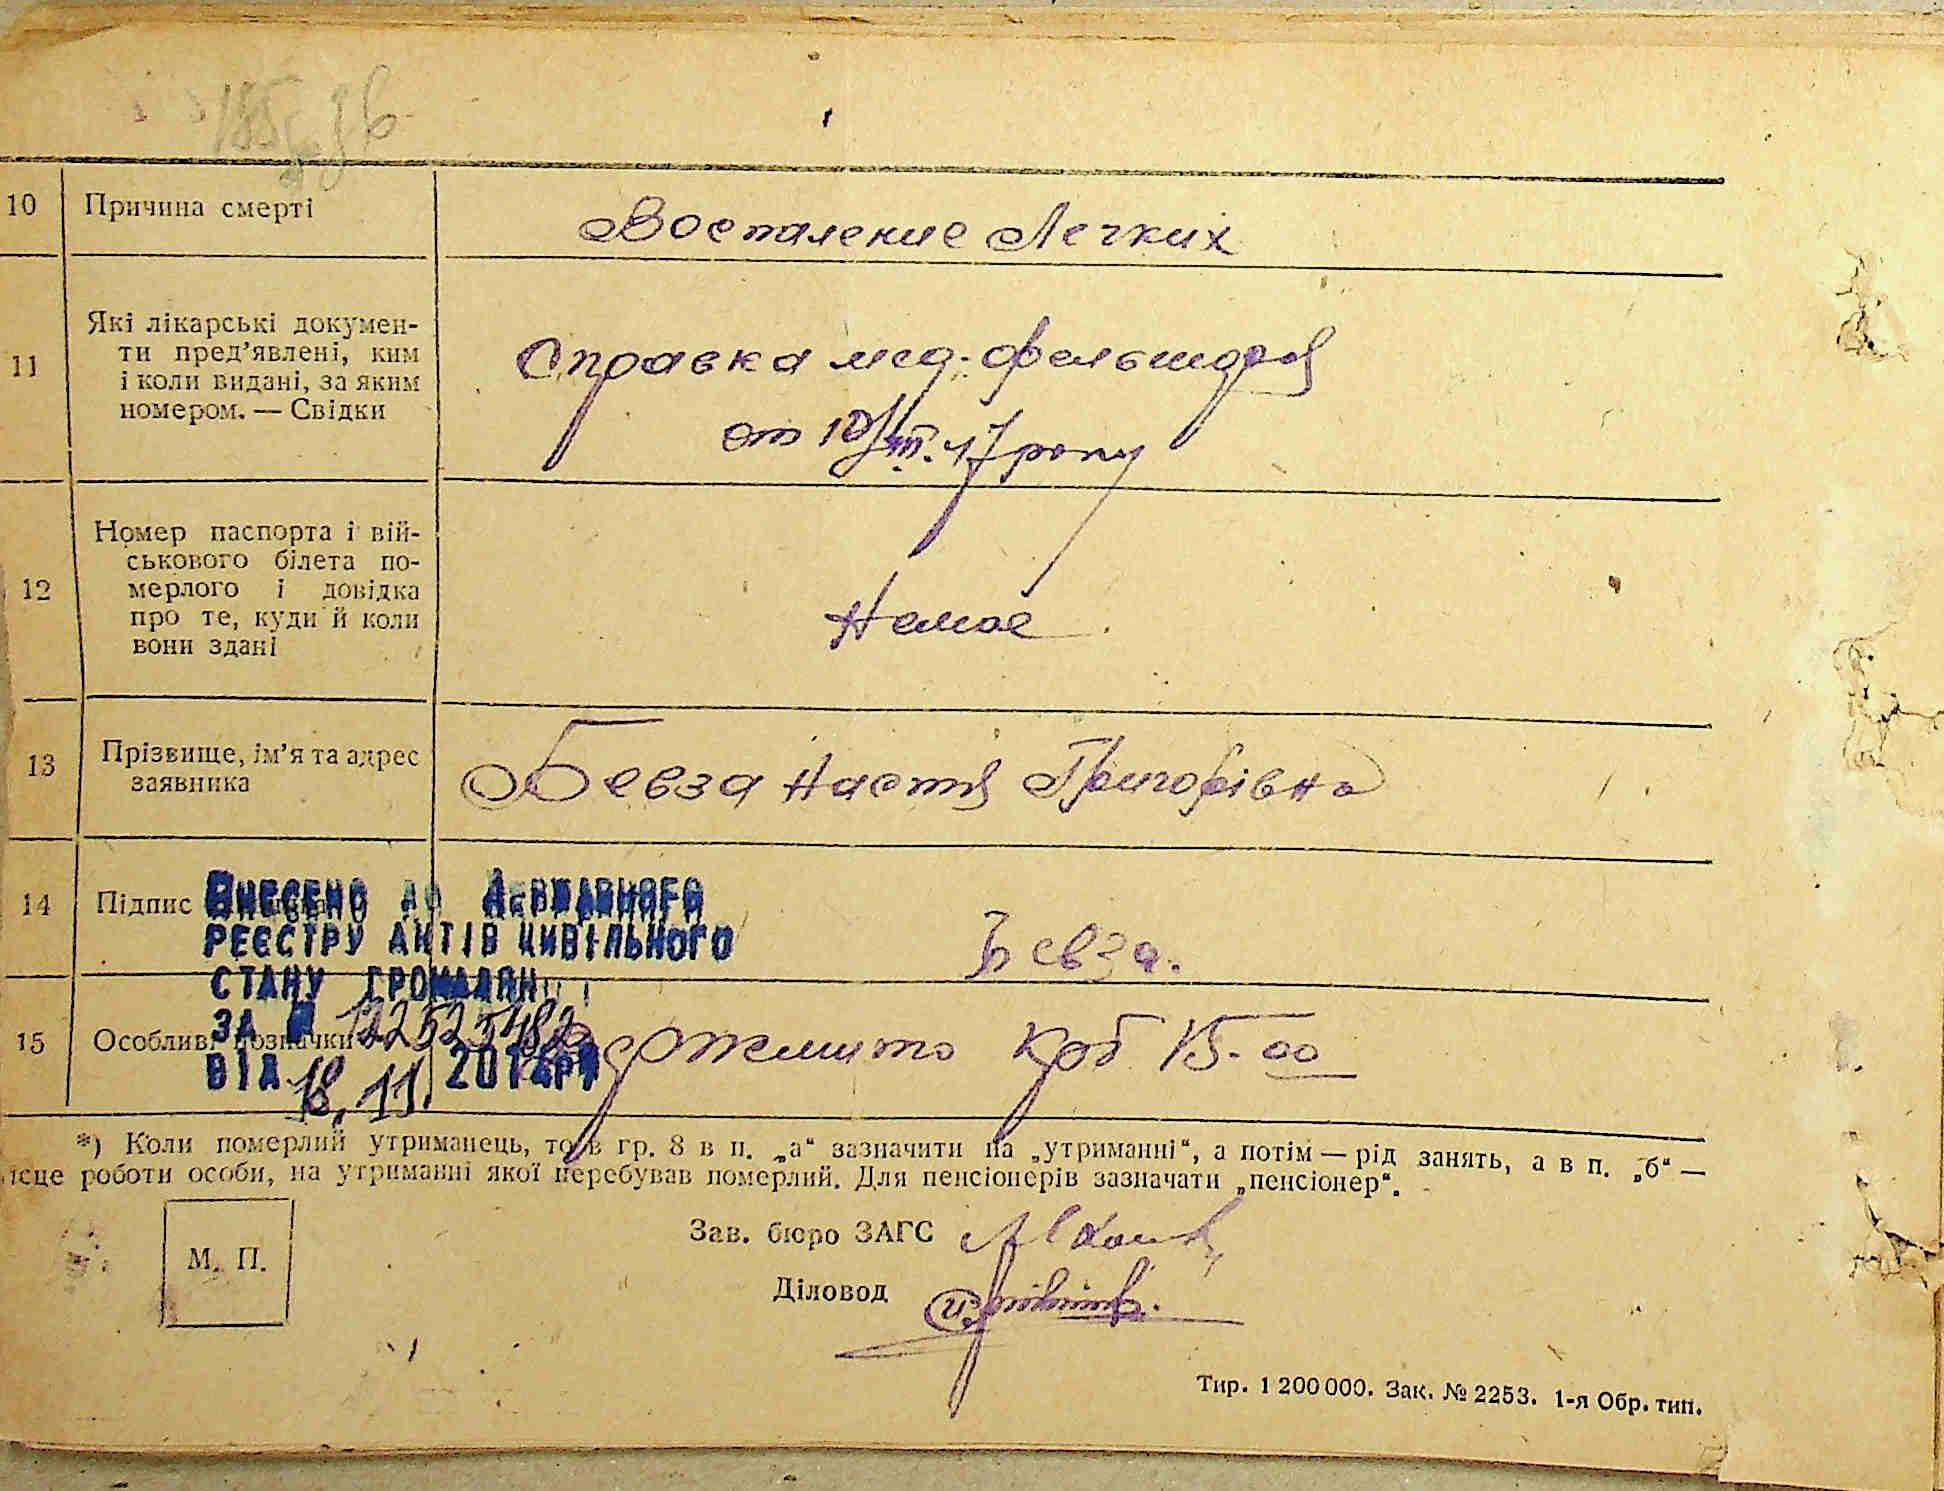 10 Причина смерті Воспаление Легких
11 Які лікарські докумен-
ти пред’явлені, ким
і коли видані, за яким
номером. — Свідки
Справка мед. фельшара
от 10/III. 17 року
12 Номер паспорта і вій-
ськового білета по-
мерлого і довідка
про те, куди й коли
вони здані
Немае
13 Прізвище, ім’я та адрес
заявника
Бевза Настя Григорівна
14 Підпис
Бевза.
Внесено до Державного
реєстру актів цивільного
стану громадян
за №
від 18.11. 2014р
15 Особливі позначки
крб 15-00
*) Коли померлий утриманець, то в гр. 8 в п. „а“ зазначити на „утриманні“, а потім — рід занять, а в п. „б“ —
ісце роботи особи, на утриманні якої перебував померлий. Для пенсіонерів зазначати „пенсіонер“.
М. П.
Зав. бюро ЗАГС
Діловод
Тир. 1 200 000. Зак. № 2253. 1-я Обр. тип.